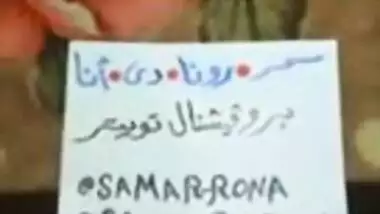 سمر•رونا•دى•أنا
بروفيشنال تويتر
@SAMAR-RONA